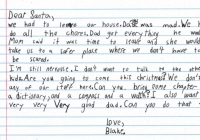 Dear Santa,
we had to leave our house. Dad was mad. We had
do all the chores. Dad got every thing he wanted
Mom said it was time to leave and she would
take us to a safer place where we don't have to
be scared.
I'm still nervous. I don't want to talk to the other
kids. Are you going to come this christmas? We don't
any of our stuff here. Can you bring some chapter
a dictionary, and a compass and a watch? I also want
very very very good dad. Can you do that
love,
Blake.